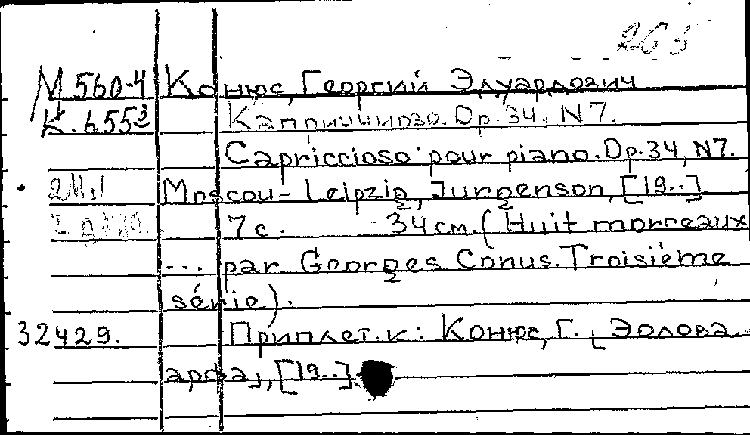 265
М 560-4 Конюс, Георгий Эдуардович
К. 6553 Каприччиозо. Op. 34, N7.
Capriccioso pour piano. Op. 34, N7.
Moscou - Leipzig, Jurgenson, [19..]
7 с. 34 см. (Huit morceaux
... par Georges Conus. Troisième
série).
32429. Приплет. к: Конюс, Г. [Эолова
арфа], [19..]